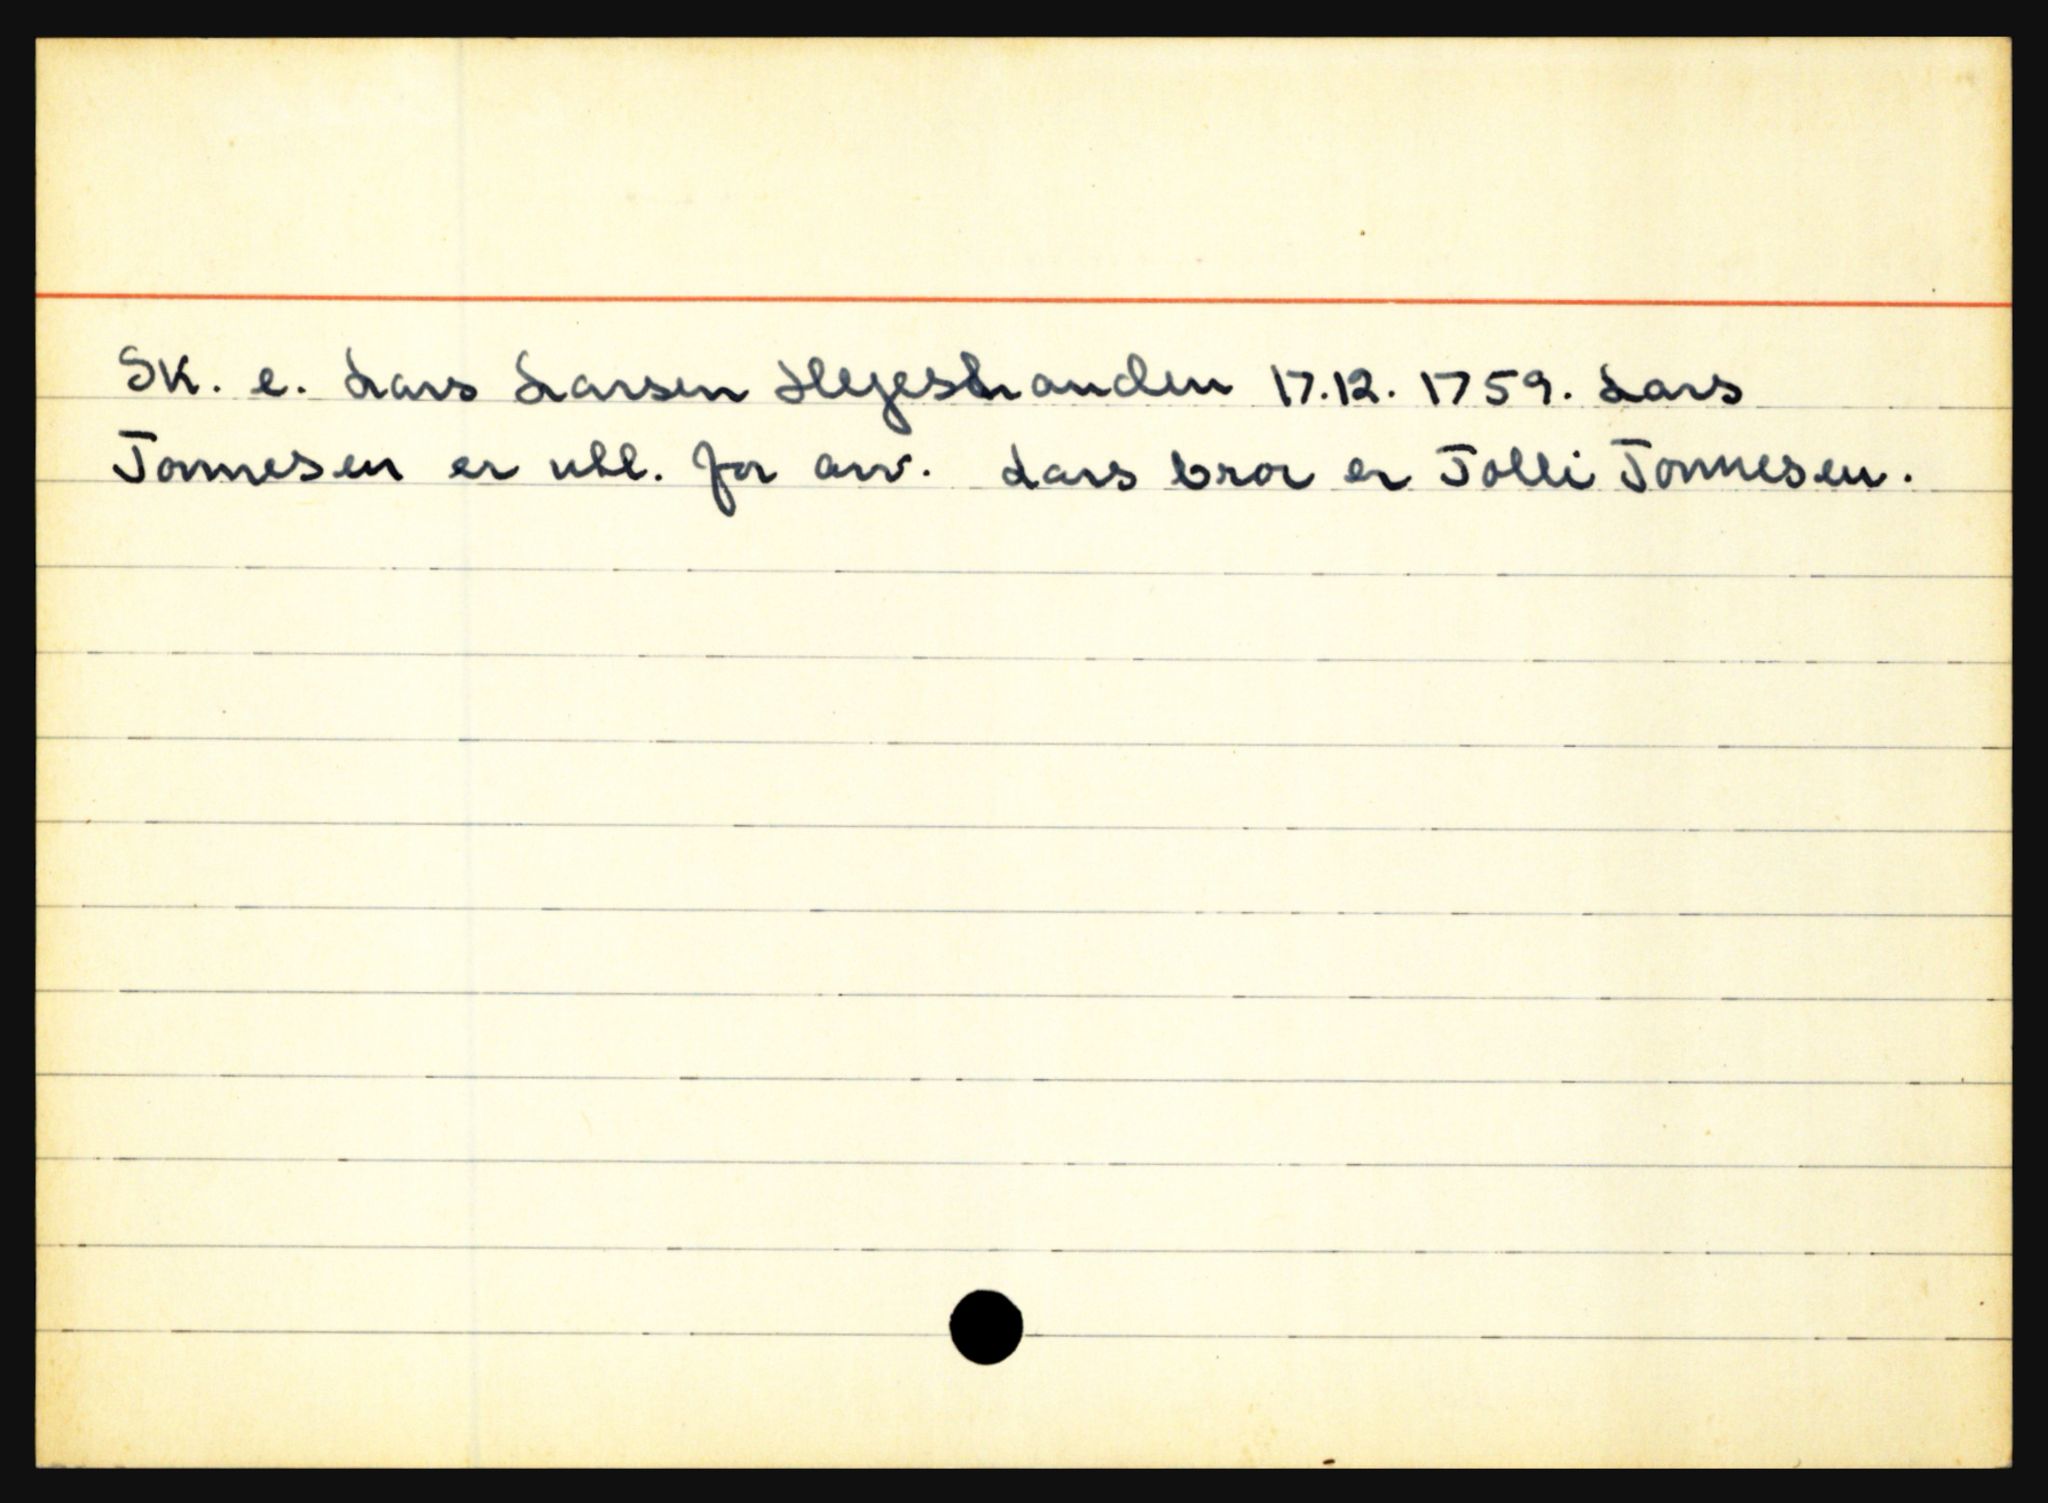 Sk. e. Lars Larsen Hegestranden 17.12.1759. Lars
Tonnesen er utl. for arv. Lars bror er Tolli Tonnesen.